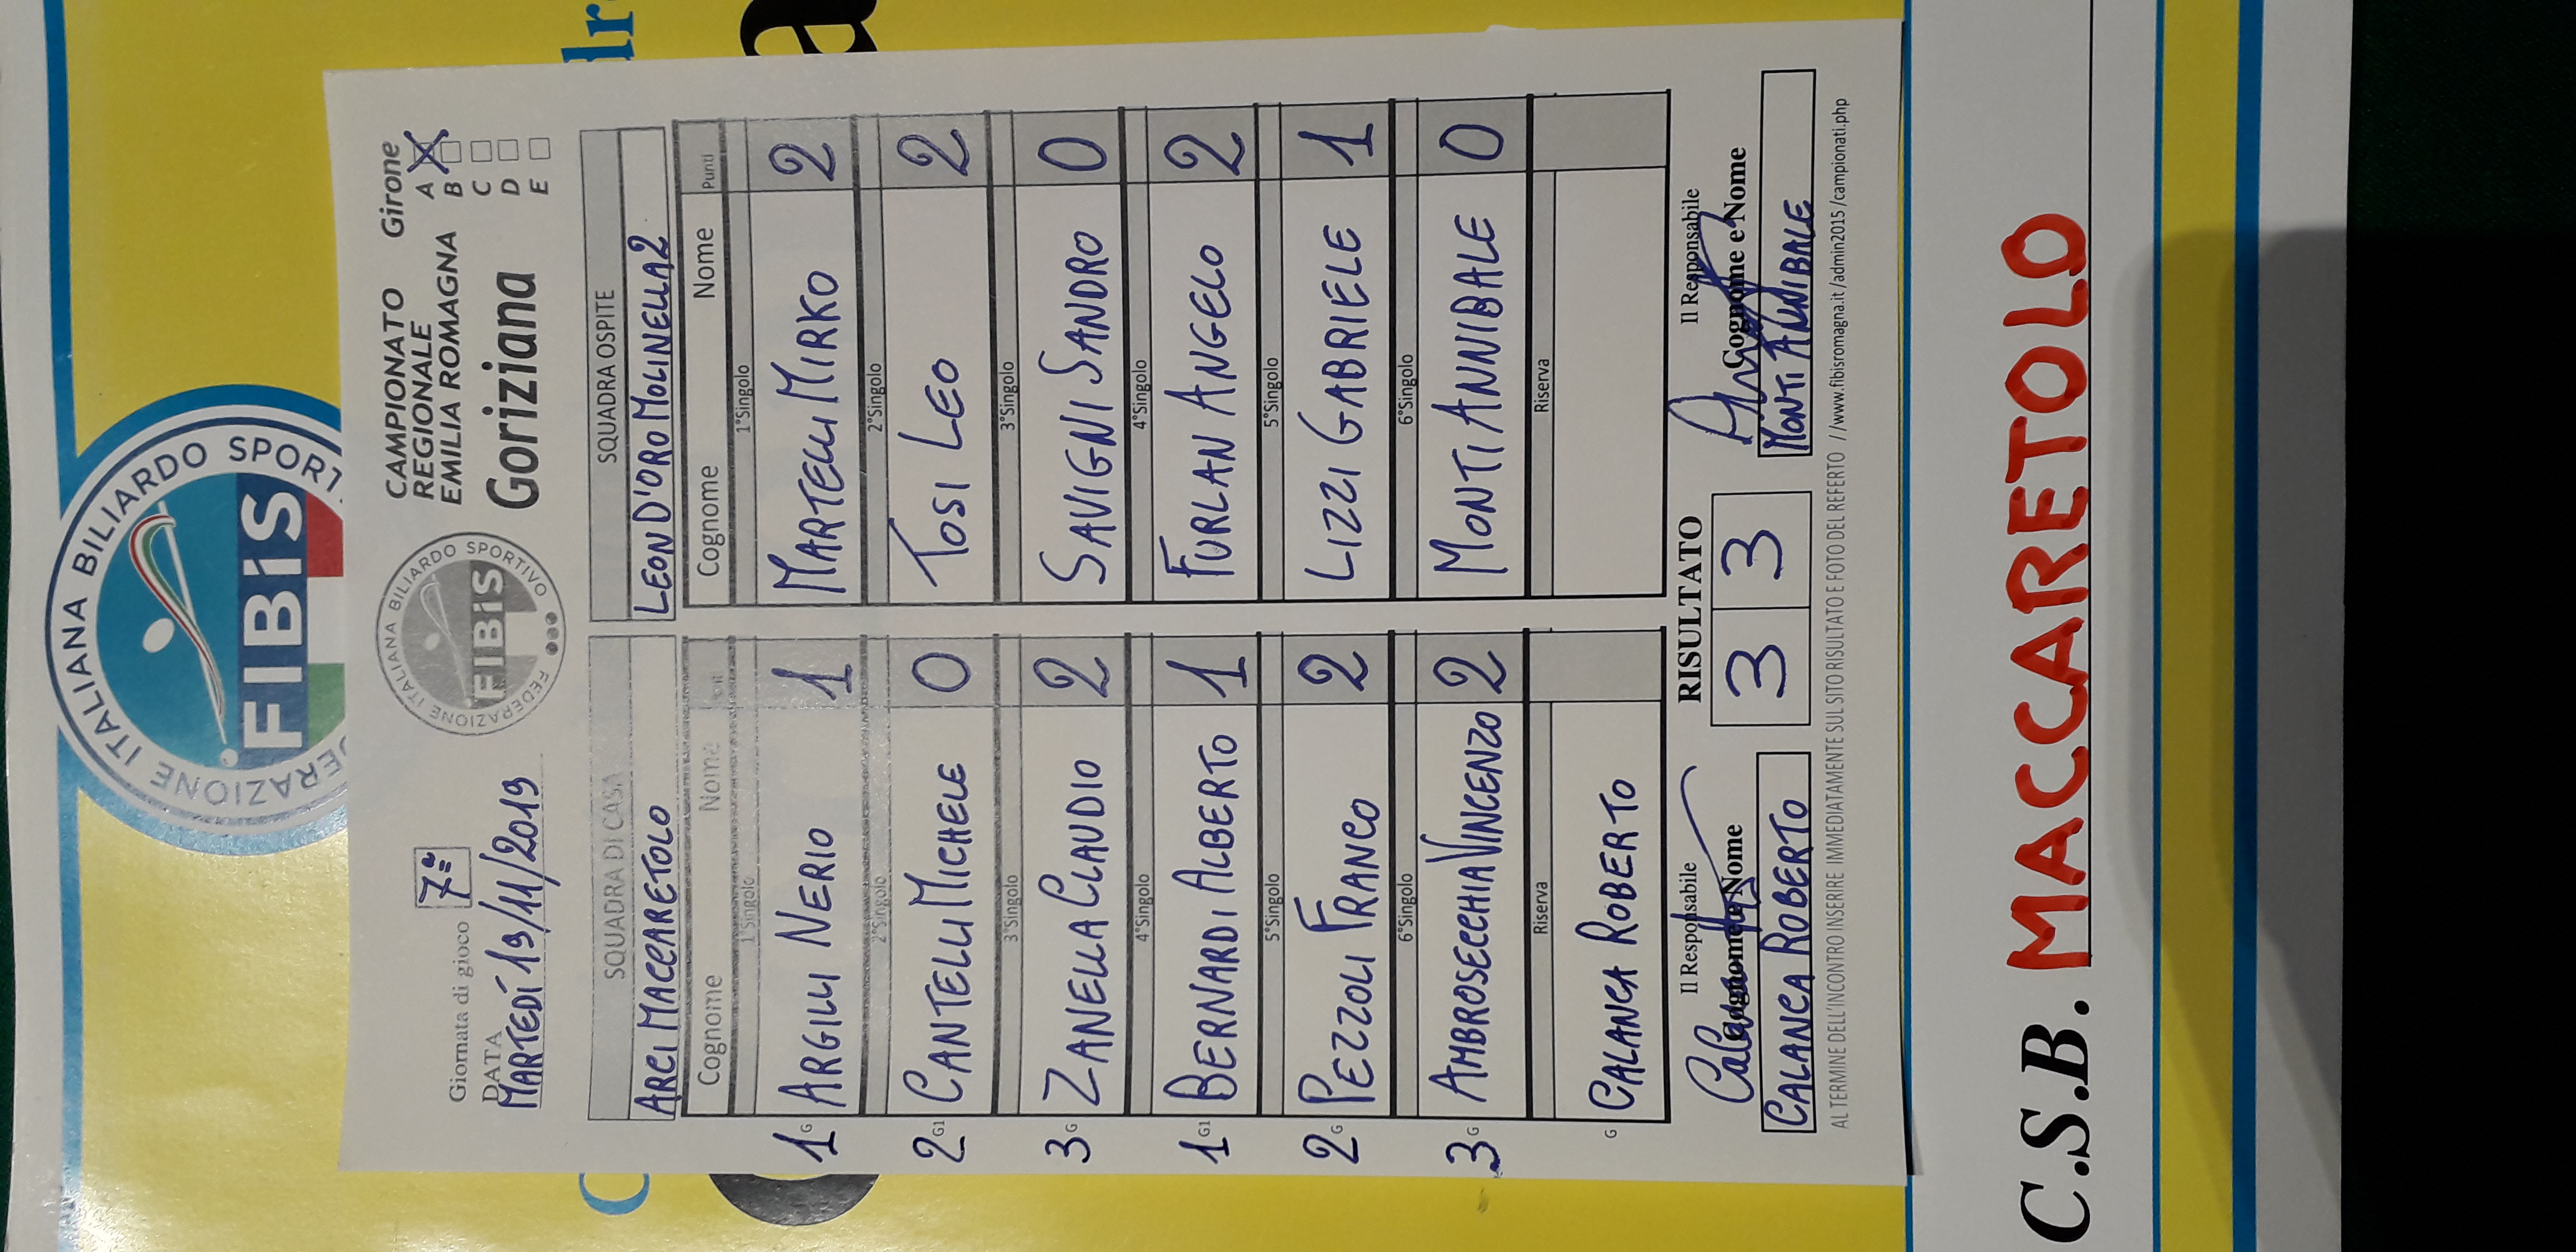 FEDERAZIONE ITALIANA BILIARDO SPORTIVO
FIBiS
CAMPIONATO
REGIONALE
EMILIA ROMAGNA
Goriziana
Girone
A
B
C
D
E
Giornata di gioco 7=ª
DATA
MARTEDÍ 19/11/2019
SQUADRA DI CASA SQUADRA OSPITE
ARCI MACCARETOLO LEON D'ORO MOLINELLA 2
Cognome Nome Punti Cognome Nome Punti
1°Singolo 1°Singolo
1 G ARGILLI NERIO 1 MARTELLI MIRKO 2
2°Singolo 2°Singolo
2 G1 CANTELLI MICHELE 0 TOSI LEO 2
3°Singolo 3°Singolo
3 G ZANELLA CLAUDIO 2 SAVIGNI SANDRO 0
4°Singolo 4°Singolo
1 G1 BERNARDI ALBERTO 1 FURLAN ANGELO 2
5°Singolo 5°Singolo
2 G PEZZOLI FRANCO 2 LIZZI GABRIELE 1
6°Singolo 6°Singolo
3 G AMBROSECCHIA VINCENZO 2 MONTI ANNIBALE 0
Riserva Riserva
G CALANCA ROBERTO
Il Responsabile RISULTATO Il Responsabile
Cognome e Nome 3 3 Cognome e Nome
CALANCA ROBERTO MONTI ANNIBALE
AL TERMINE DELL'INCONTRO INSERIRE IMMEDIATAMENTE SUL SITO RISULTATO E FOTO DEL REFERTO //www.fibisromagna.it/admin2015/campionati.php
C.S.B. MACCARETOLO